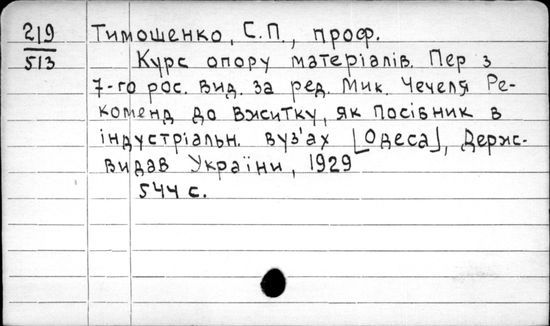 219 Тимошенко, С.П., проф.
513 Курс опору матеріалів. Пер з
7-го рос. вид. за ред. Мик. Чечеля Ре-
коменд до вжитку, як посібник в
індустріальн. вуз'ах [Одеса], Держ-
видав України, 1929
544 с.